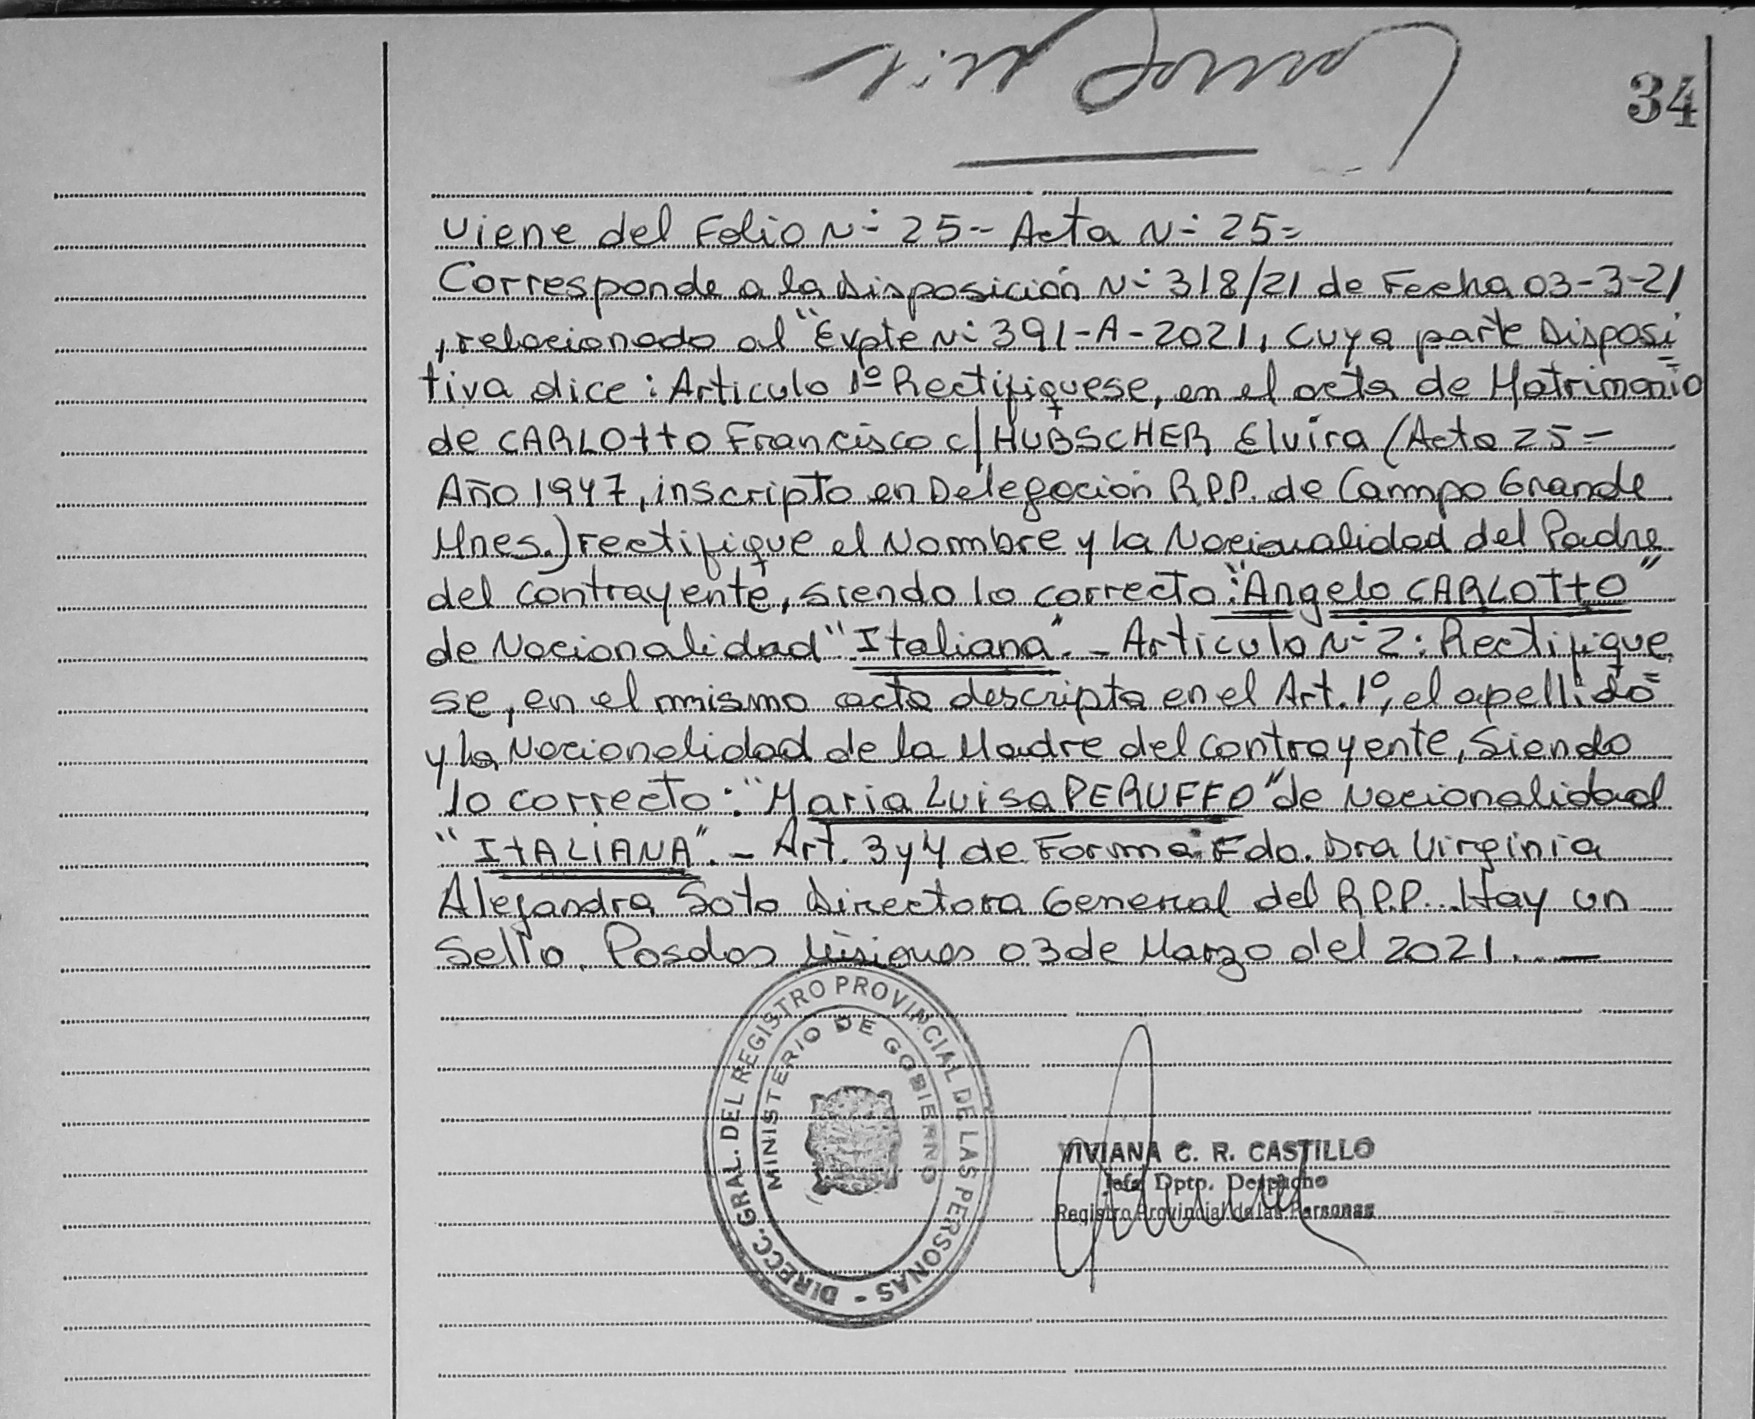 34
Viene del Folio Nº 25- Acta Nº 25=
Corresponde a la Disposición Nº 318/21 de Fecha 03-3-21
, relacionado al "Expte Nº 391-A-2021, cuya parte Disposi
tiva dice: Articulo 1º Rectifiquese, en el acta de Matrimonio
de CARLOTTO Francisco c/ HUBSCHER, Elvira (Acta 25=
Año 1947, inscripto en Delegacion R.P.P. de Campo Grande
Mnes.) rectifique el Nombre y la Nacionalidad del Padre
del contrayente, siendo lo correcto: "Angelo CARLOTTO"
de Nacionalidad "Italiana". - Articulo Nº 2: Rectifique
se, en el mismo acta descripta en el Art. 1º, el apellido=
y la Nacionalidad de la Madre del contrayente, siendo
lo correcto: "Maria Luisa PERUFFO" de Nacionalidad
"ITALIANA". - Art. 3 y 4 de Forma: Fdo. Dra Virginia
Alejandra Soto Directora General del R.P.P... Hay un
Sello. Posadas Misiones 03 de Marzo del 2021. . —
DIRECC. GRAL. DEL REGISTRO PROVINCIAL DE LAS PERSONAS -
MINISTERIO DE GOBIERNO
VIVIANA C. R. CASTILLO
Jefa Dpto. Despacho
Registro Provincial de las Personas